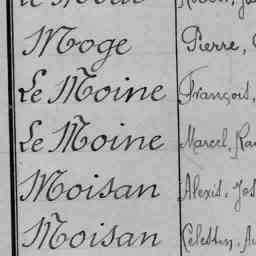 Moge Pierre,
Le Moine François,
Le Moine Marcel,
Moisan Alexis,
Moisan Célestin,